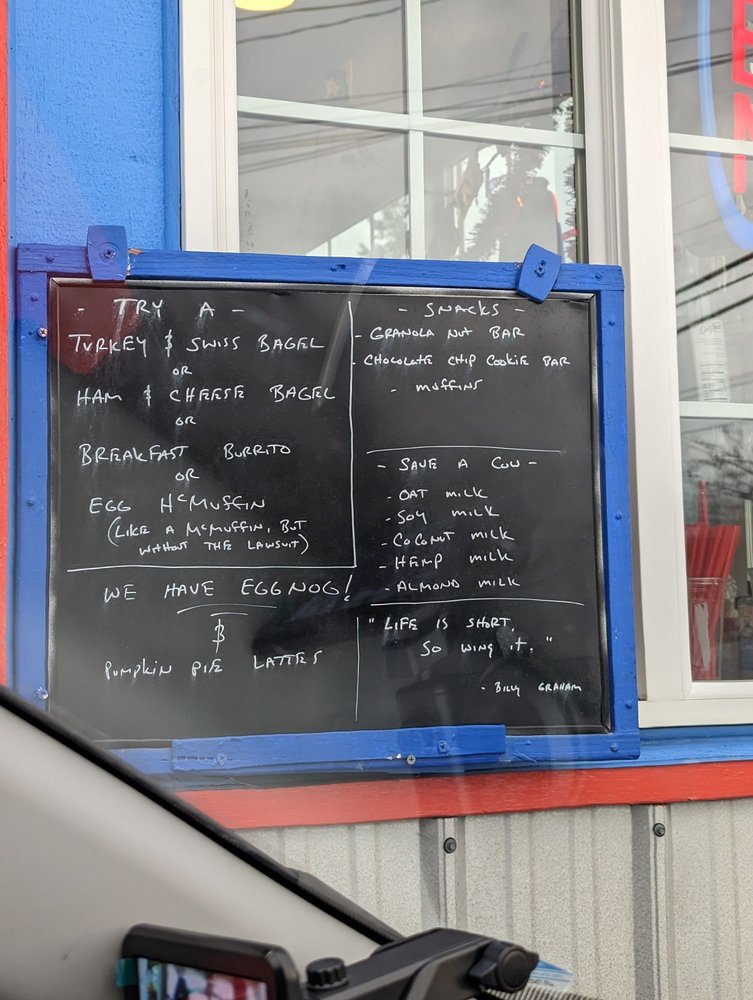 - TRY A -
TURKEY & SWISS BAGEL
OR
HAM & CHEESE BAGEL
OR
BREAKFAST BURRITO
OR
EGG HCMUFFIN
(LIKE A MCMUFFIN, BUT
WITHOUT THE LAWSUIT)
WE HAVE EGG NOG!
&
PUMPKIN PIE LATTES
- SNACKS -
- GRANOLA NUT BAR
- CHOCOLATE CHIP COOKIE BAR
- MUFFINS
- SAVE A COW -
- OAT MILK
- SOY MILK
- COCONUT MILK
- HEMP MILK
- ALMOND MILK
"LIFE IS SHORT,
SO WING IT."
- BILLY GRAHAM